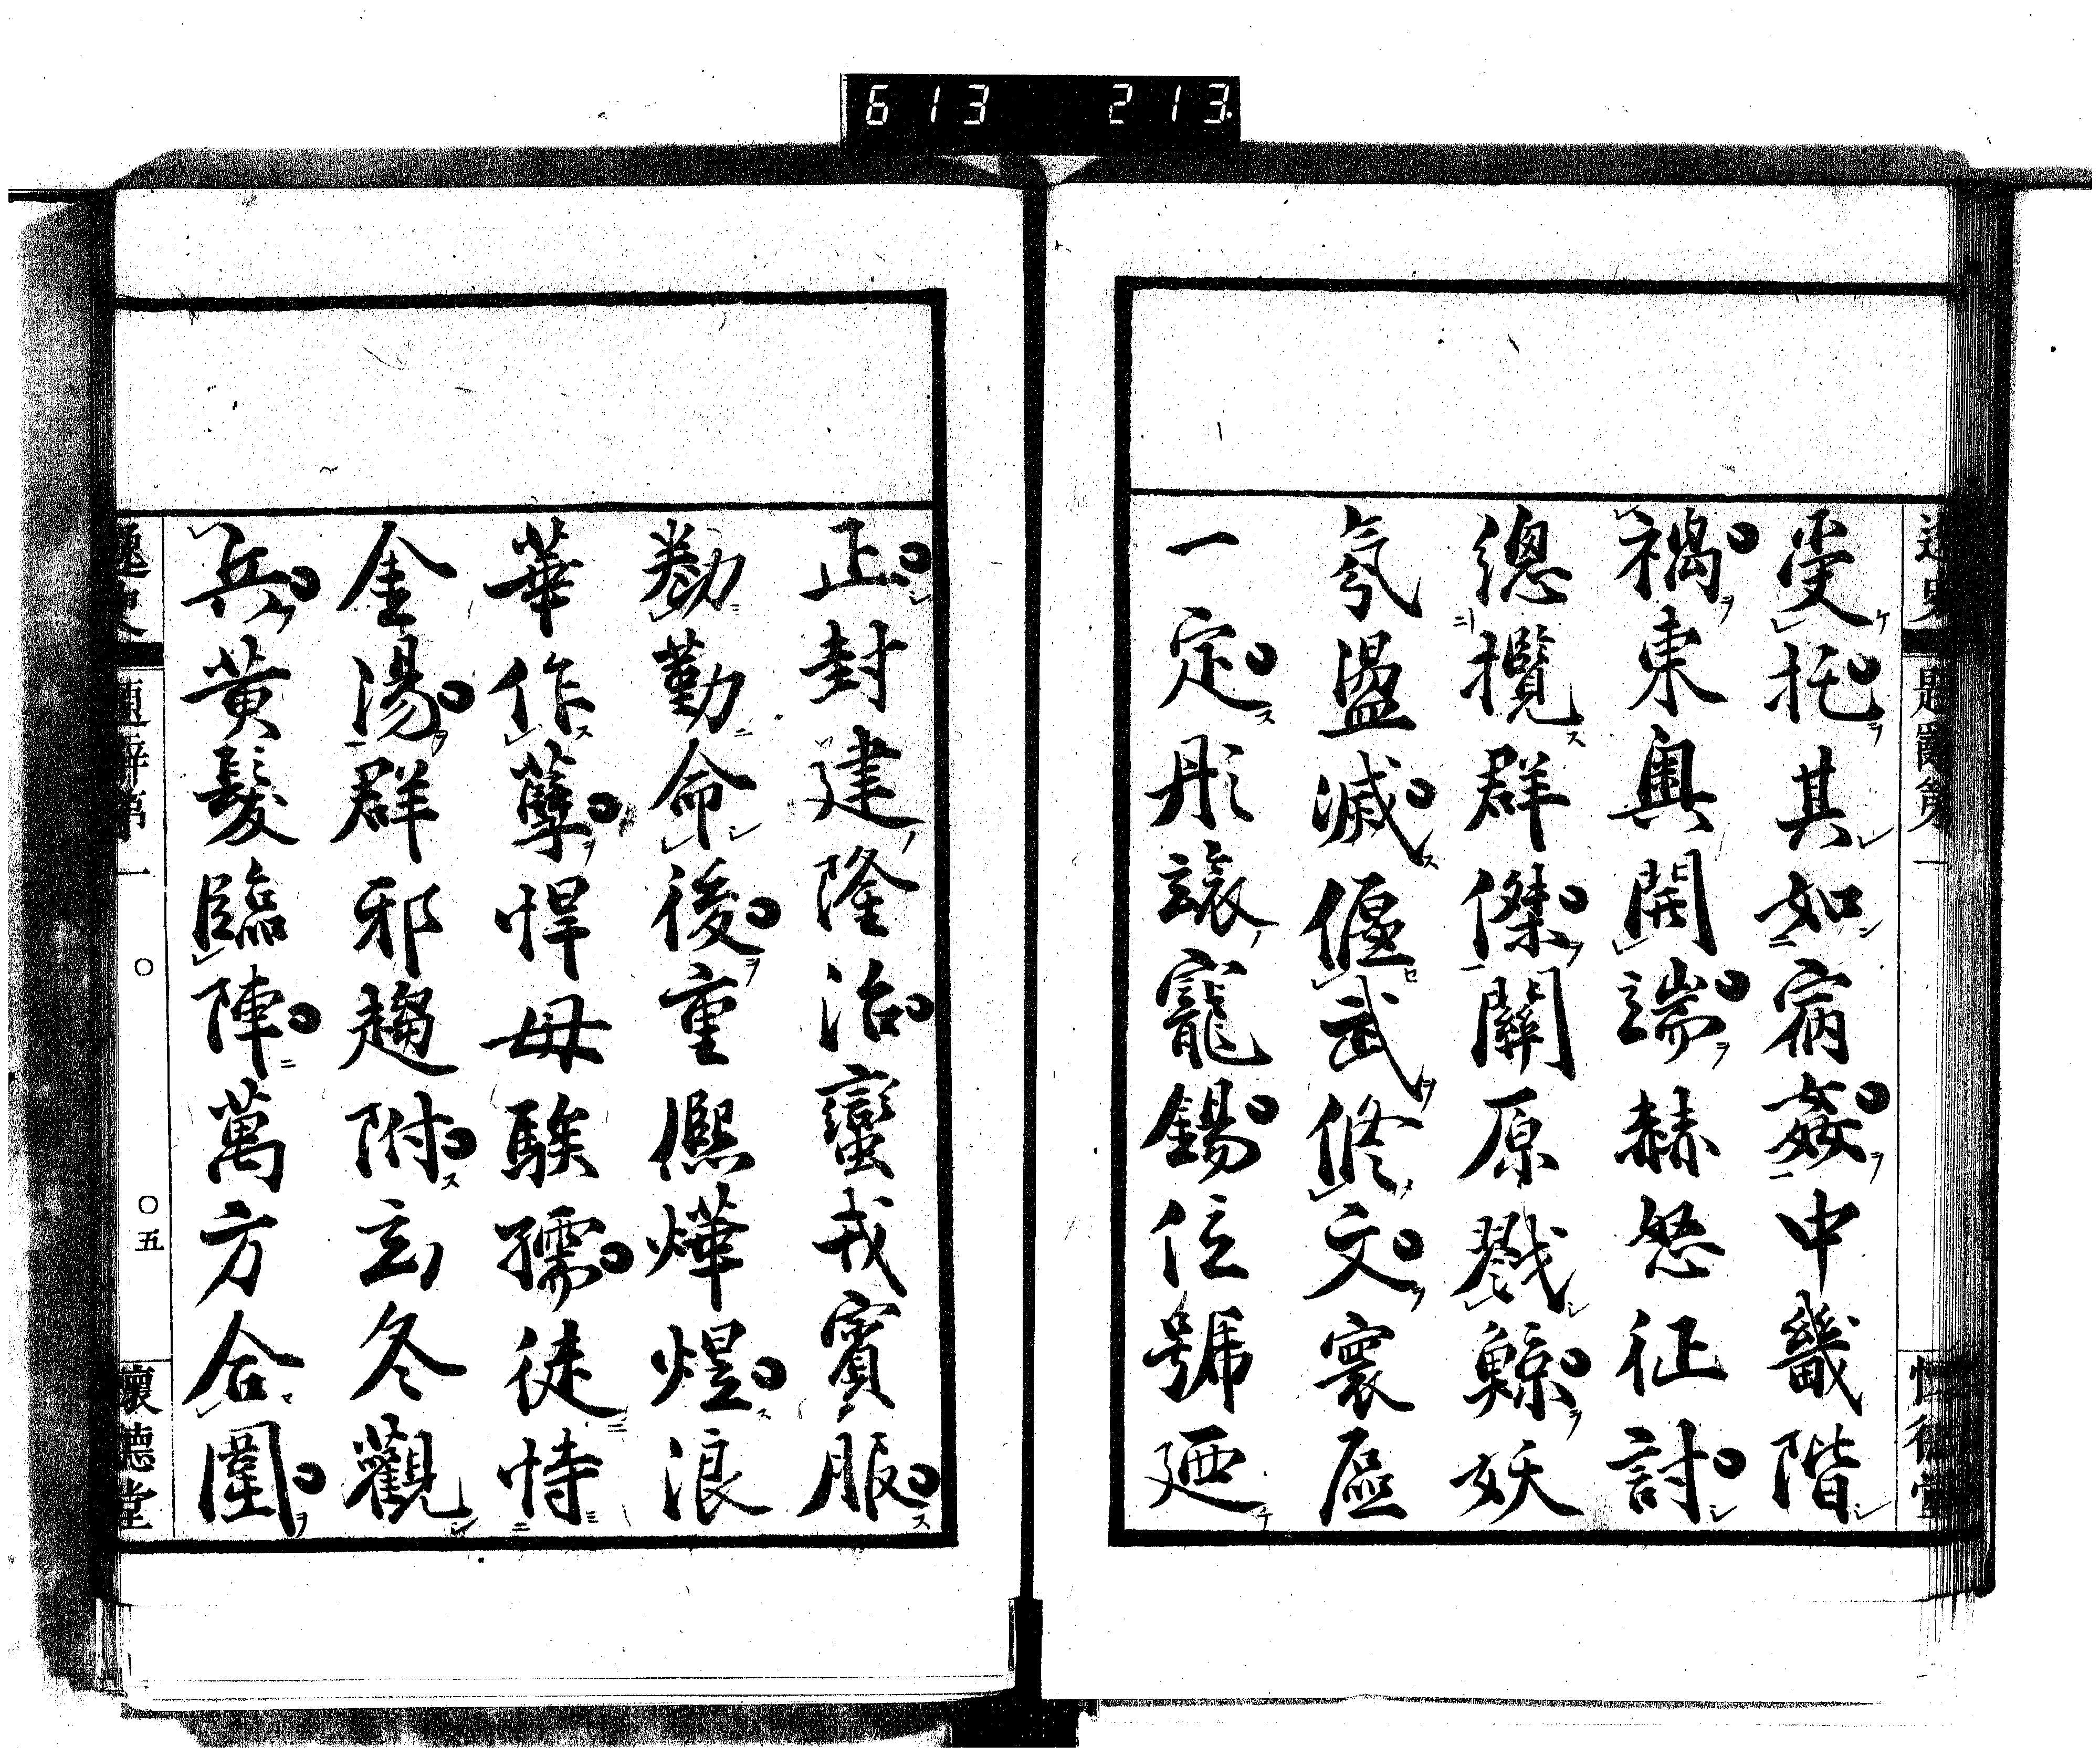 613 213
逸史 題辭第一 懷德堂
受托其如宿姦中畿階
禍東輿開端赫怒征討
總攬群傑關原戮鯨妖
氛盪滅偃武修文寰區
一定彤議寵錫位號廼
正封建隆治蠻戎賓服
勌勤命後重熙燁煜浪
華作孽悍母騃孺徒恃
金湯群邪趨附玄冬觀
兵黃髮臨陣萬方合圍
逸史 題辭第一 〇 〇五 懷德堂